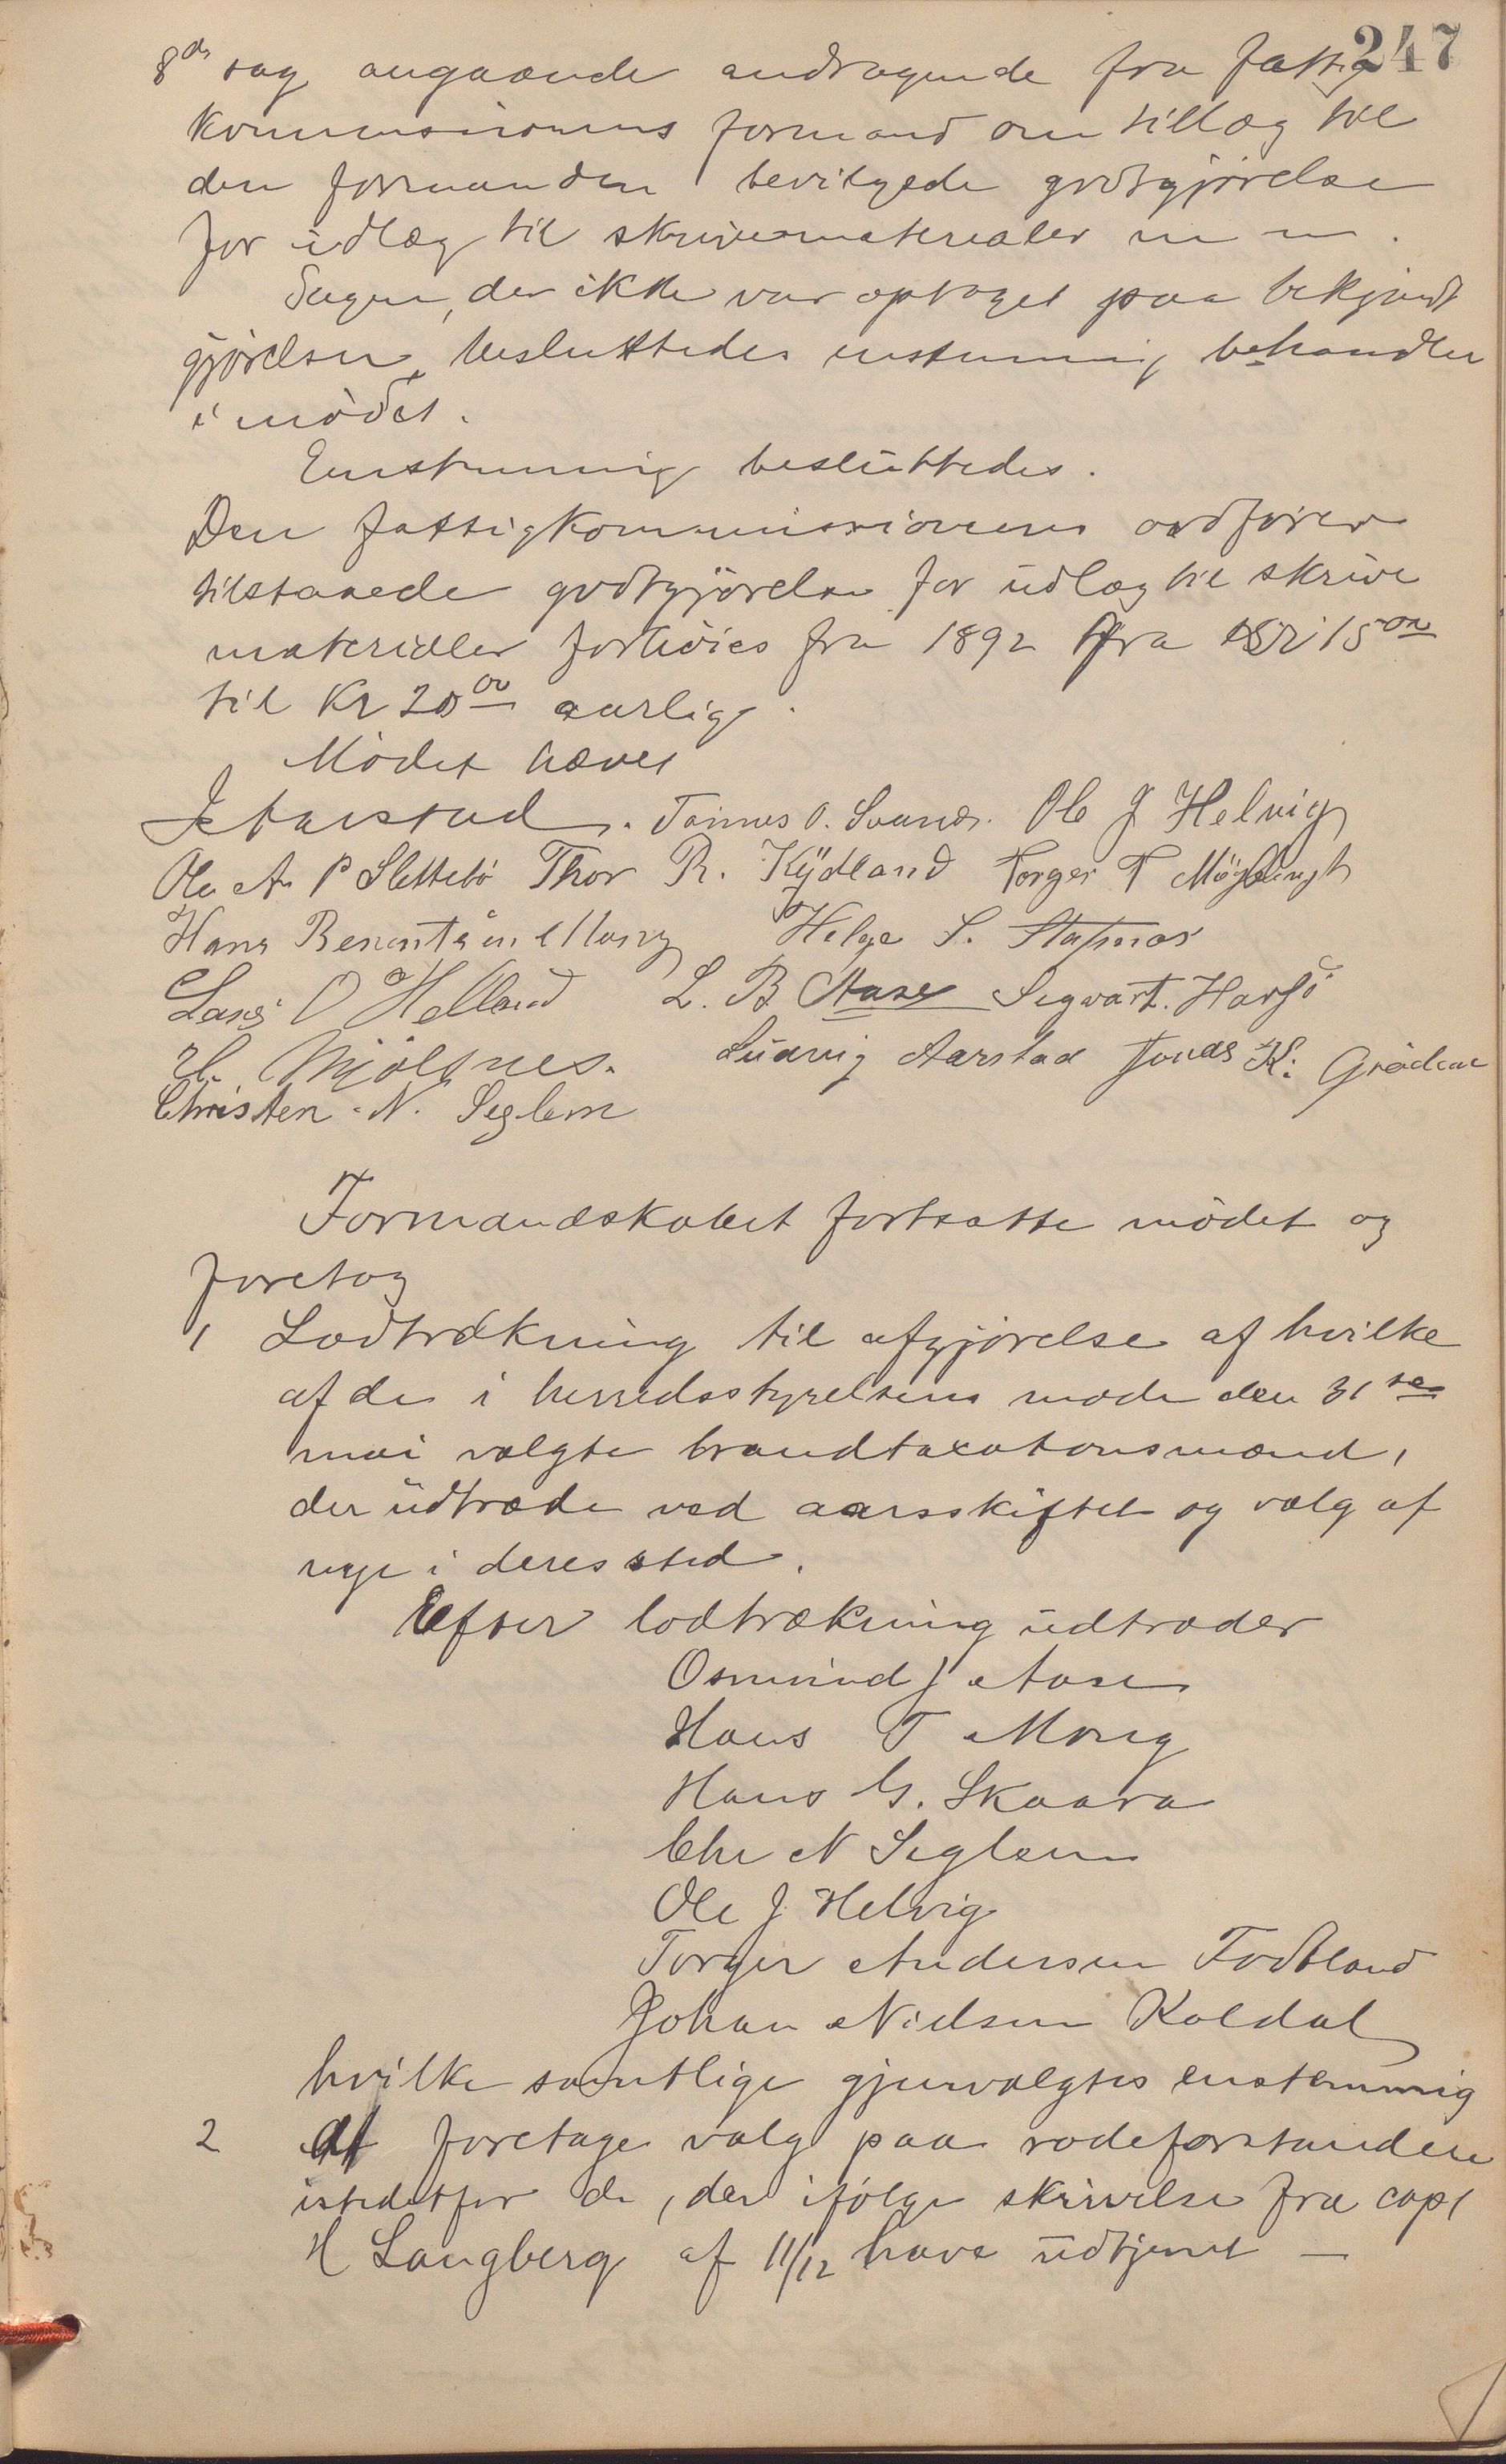 247
8de sag angaaende andragende fra fattig
kommisionens formand om tillæg til
den formanden bevilgede godtgjørelse
for udlæg til skrivematerialer m m.
Sagen, der ikke var optaget paa bekjendt
gjørelsen, besluttedes enstemmig behandlet
i mødet.
Enstemmig besluttedes.
Den fattigkommissionens ordfører
tilstaaede godtgjørelse for udlæg til skrive
materialer forhøies fra 1892 fra Kr 15 00
til Kr 20 00 aarlig.
Mødet hævet
J Aarstad. Tønnes O. Svanes. Ole J Helvig
Ole A P Slettebø Thor R. Kydland Torger T
Hans Berentsen Mong Helge S. Stapnes
Lars O Helland L. B Aase Segwart. Havsø
H. Mjølhus. Ludvig Aarstad Jonas K. Grødem
Christen N. Seglem
Formandskabet fortsatte mødet og
foretog
1 Lodtrækning til afgjørelse af hvilke
af de i herredsstyrelsens møde den 31te
mai valgte brandtaxationsmænd,
der udtræde ved aarsskiftet og valg af
nye i deres sted.
Efter lodtrækning udtræder
Osmund J Aase
Hans T Mong
Hans G. Skaara
Chr N Seglem
Ole J Helvig
Torger Andersen Fodtland
Johan Nielsen Koldal
hvilke samtlige gjenvalgtes enstemmig
2 At foretage valg paa rodeforstandere
istedetfor de, der ifølge skrivelse fra capt
H Langberg af 11/12 have udtjent —